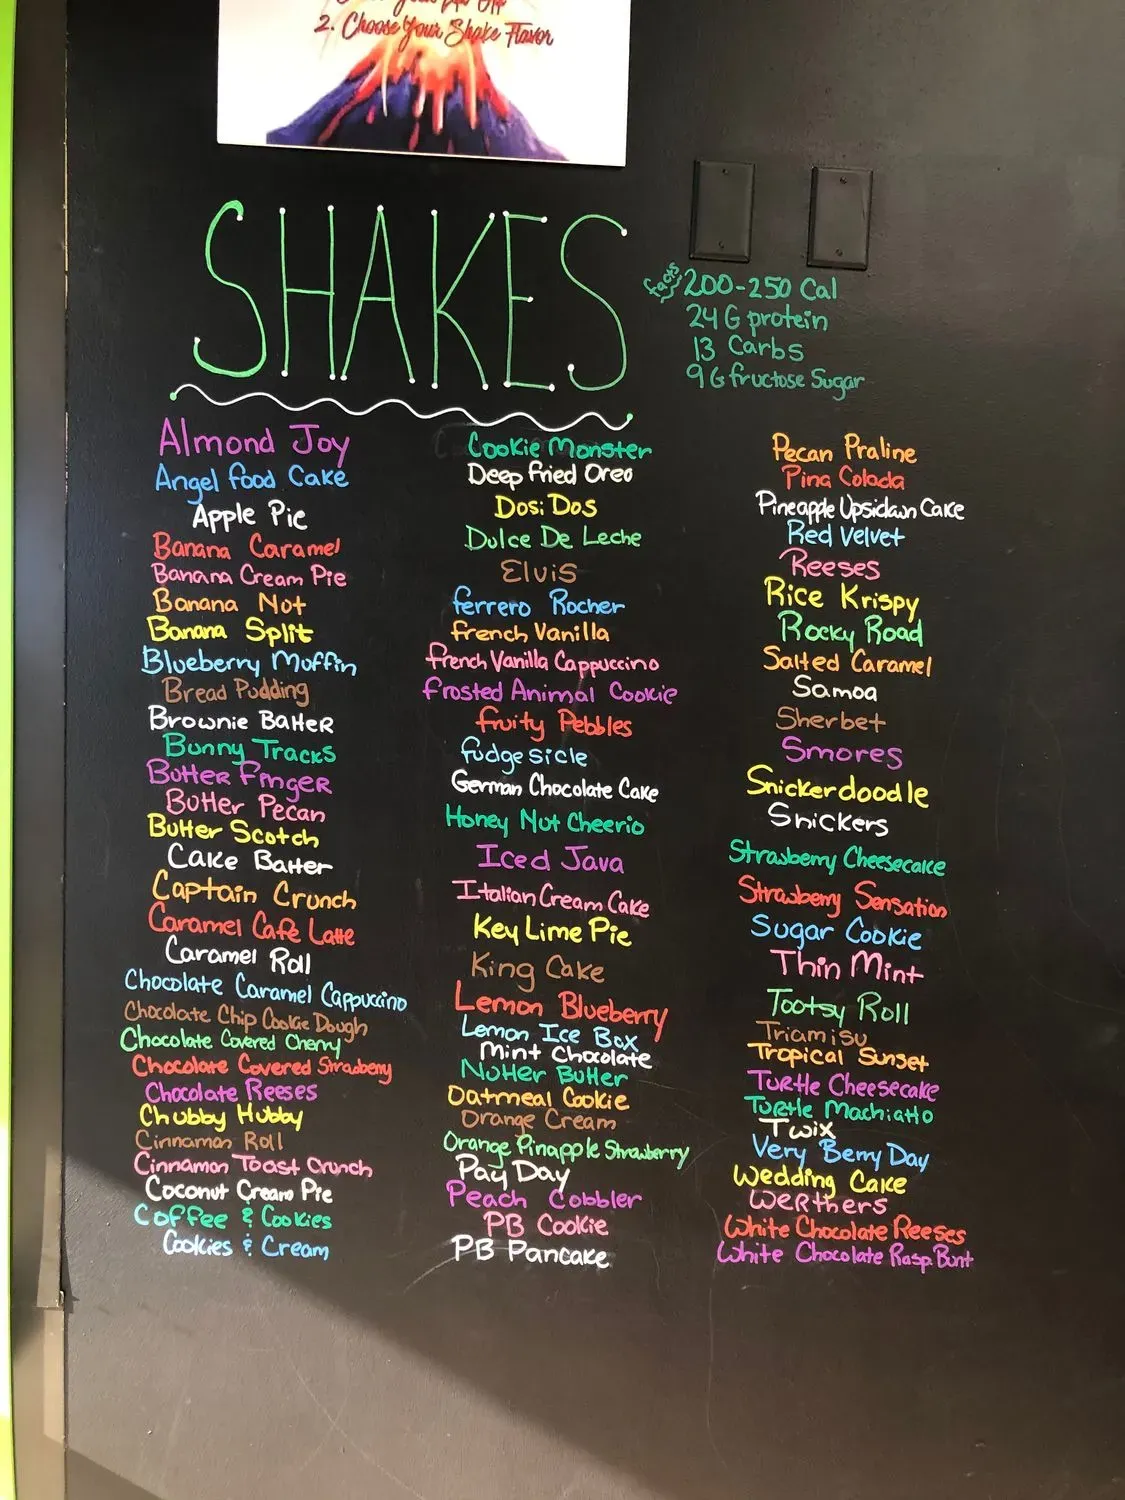 2. Choose Your Shake Flavor
SHAKES
facts
200-250 Cal
24 G protein
13 Carbs
9 G fructose Sugar
Almond Joy
Angel food Cake
Apple Pie
Banana Caramel
Banana Cream Pie
Banana Nut
Banana Split
Blueberry Muffin
Bread Pudding
Brownie Batter
Bunny Tracks
Butter Finger
Butter Pecan
Butter Scotch
Cake Batter
Captain Crunch
Caramel Café Latte
Caramel Roll
Chocolate Caramel Cappuccino
Chocolate Chip Cookie Dough
Chocolate Covered Cherry
Chocolate Covered Strawberry
Chocolate Reeses
Chubby Hubby
Cinnamon Roll
Cinnamon Toast Crunch
Coconut Cream Pie
Coffee & Cookies
Cookies & Cream
Cookie Monster
Deep fried Oreo
Dosi Dos
Dulce De Leche
Elvis
ferrero Rocher
french Vanilla
french Vanilla Cappuccino
frosted Animal Cookie
fruity Pebbles
fudgesicle
German Chocolate Cake
Honey Nut Cheerio
Iced Java
Italian Cream Cake
Key Lime Pie
King Cake
Lemon Blueberry
Lemon Ice Box
Mint Chocolate
Nutter Butter
Oatmeal Cookie
Orange Cream
Orange Pinapple Strawberry
Pay Day
Peach Cobbler
PB Cookie
PB Pancake
Pecan Praline
Pina Colada
Pineapple Upsidawn Cake
Red Velvet
Reeses
Rice Krispy
Rocky Road
Salted Caramel
Samoa
Sherbet
Smores
Snickerdoodle
Snickers
Strawberry Cheesecake
Strawberry Sensation
Sugar Cookie
Thin Mint
Tootsy Roll
Triamisu
Tropical Sunset
Turtle Cheesecake
Turtle Machiatto
Twix
Very Berry Day
Wedding Cake
Werthers
White Chocolate Reeses
White Chocolate Rasp. Bunt